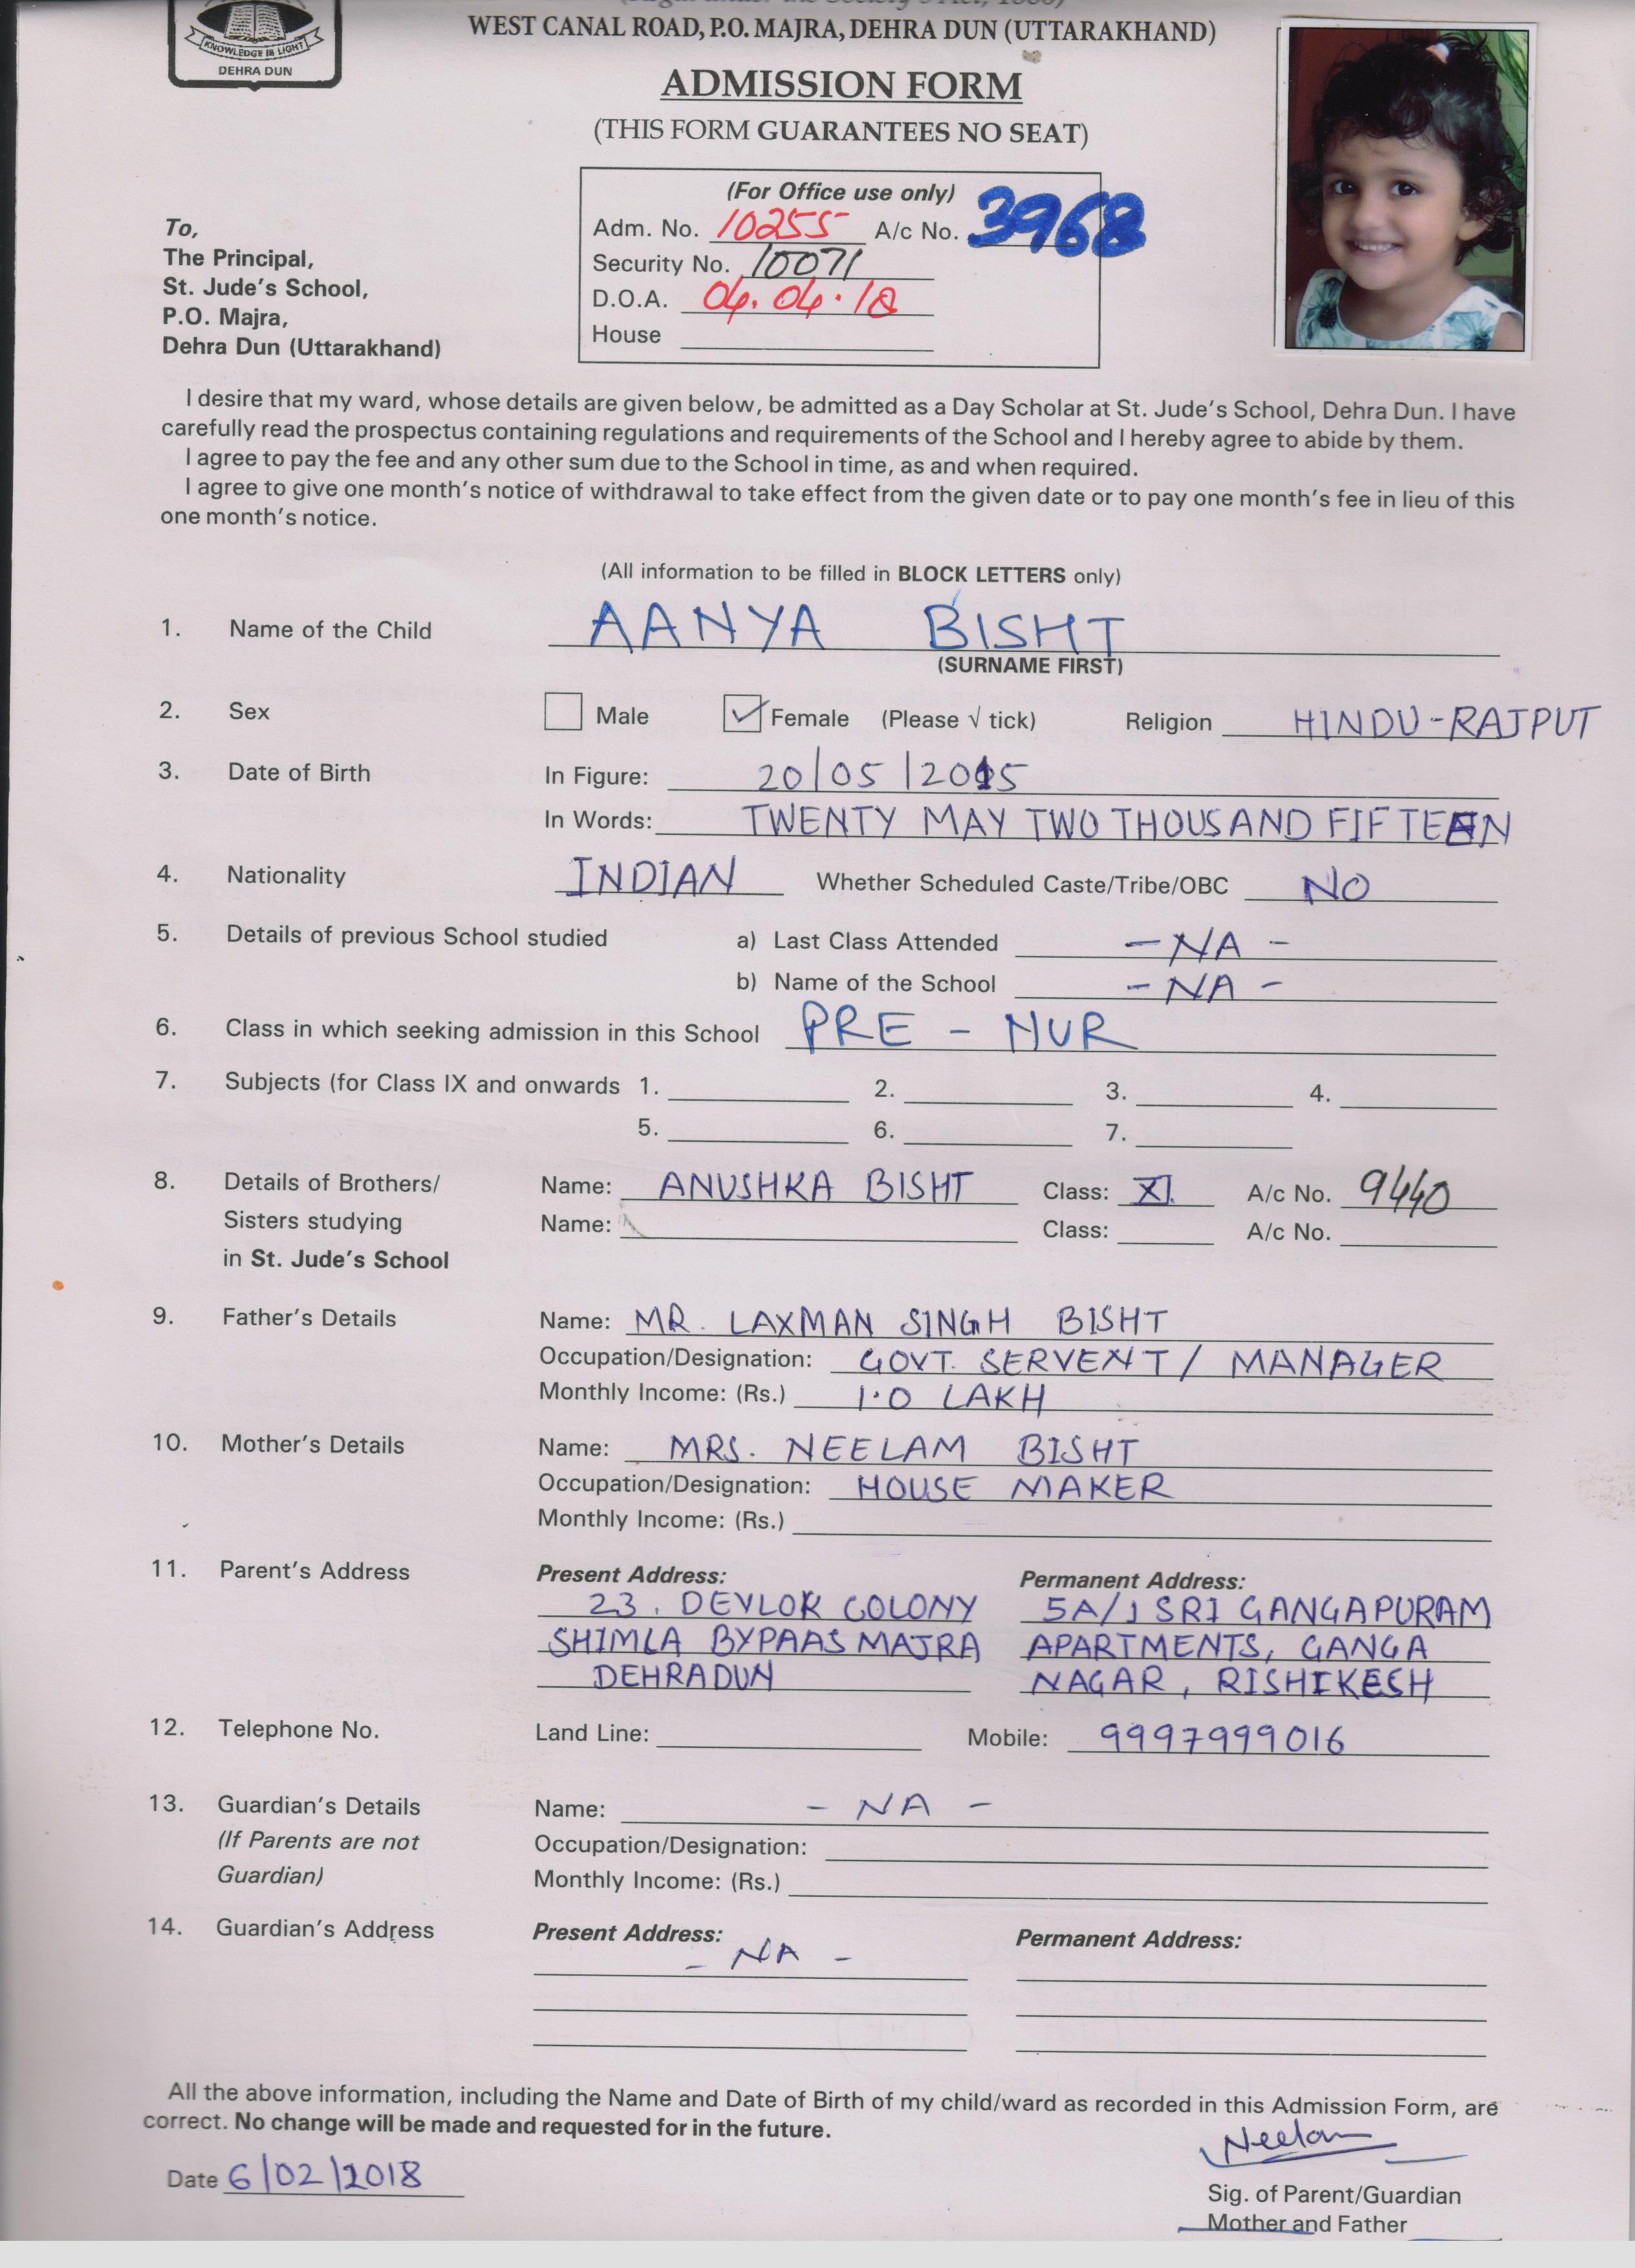 KNOWLEDGE IS LIGHT
DEHRA DUN
WEST CANAL ROAD, P.O. MAJRA, DEHRA DUN (UTTARAKHAND)
ADMISSION FORM
(THIS FORM GUARANTEES NO SEAT)
(For Office use only)
Adm. No. 10255 A/c No. 3968
Security No. 10071
D.O.A. 04.04.18
House
To,
The Principal,
St. Jude's School,
P.O. Majra,
Dehra Dun (Uttarakhand)
I desire that my ward, whose details are given below, be admitted as a Day Scholar at St. Jude's School, Dehra Dun. I have
carefully read the prospectus containing regulations and requirements of the School and I hereby agree to abide by them.
I agree to pay the fee and any other sum due to the School in time, as and when required.
I agree to give one month's notice of withdrawal to take effect from the given date or to pay one month's fee in lieu of this
one month's notice.
(All information to be filled in BLOCK LETTERS only)
1. Name of the Child AANYA BISHT
(SURNAME FIRST)
2. Sex Male Female (Please √ tick) Religion HINDU-RAJPUT
3. Date of Birth In Figure: 20/05/2015
In Words: TWENTY MAY TWO THOUSAND FIFTEEN
4. Nationality INDIAN Whether Scheduled Caste/Tribe/OBC NO
5. Details of previous School studied a) Last Class Attended -NA-
b) Name of the School -NA-
6. Class in which seeking admission in this School PRE - NUR
7. Subjects (for Class IX and onwards 1. 2. 3. 4.
5. 6. 7.
8. Details of Brothers/ Name: ANUSHKA BISHT Class: XI A/c No. 9440
Sisters studying Name: Class: A/c No.
in St. Jude's School
9. Father's Details Name: MR. LAXMAN SINGH BISHT
Occupation/Designation: GOVT. SERVENT / MANAGER
Monthly Income: (Rs.) 1.0 LAKH
10. Mother's Details Name: MRS. NEELAM BISHT
Occupation/Designation: HOUSE MAKER
Monthly Income: (Rs.)
11. Parent's Address Present Address: Permanent Address:
23, DEVLOK COLONY 5A/1 SRI GANGAPURAM
SHIMLA BYPAAS MAJRA APARTMENTS, GANGA
DEHRADUN NAGAR, RISHIKESH
12. Telephone No. Land Line: Mobile: 9997999016
13. Guardian's Details Name: - NA -
(If Parents are not Occupation/Designation:
Guardian) Monthly Income: (Rs.)
14. Guardian's Address Present Address: Permanent Address:
- NA -
All the above information, including the Name and Date of Birth of my child/ward as recorded in this Admission Form, are
correct. No change will be made and requested for in the future.
Neelam
Date 6/02/2018
Sig. of Parent/Guardian
Mother and Father